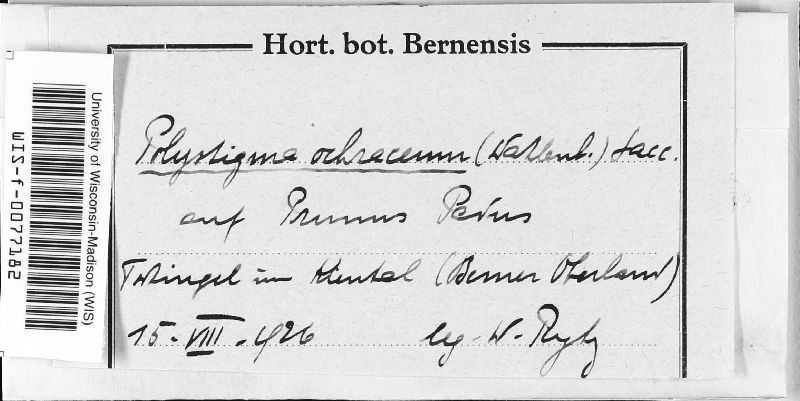 Hort. bot. Bernensis
Polystigma ochraceum (Wahlenb.) Sacc.
auf Prunus Padus
im Kiental (Berner Oberland)
15. VIII. 1926 leg. W. Rytz
University of Wisconsin-Madison (WIS)
WIS-f-0077182